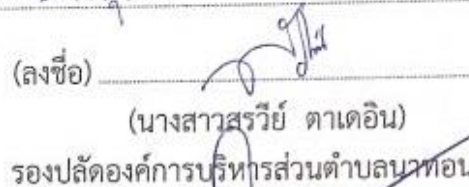 (ลงชื่อ)
(นางสาวสุรวีย์ ตาเดอิน)
รองปลัดองค์การบริหารส่วนตำบลนาทอน